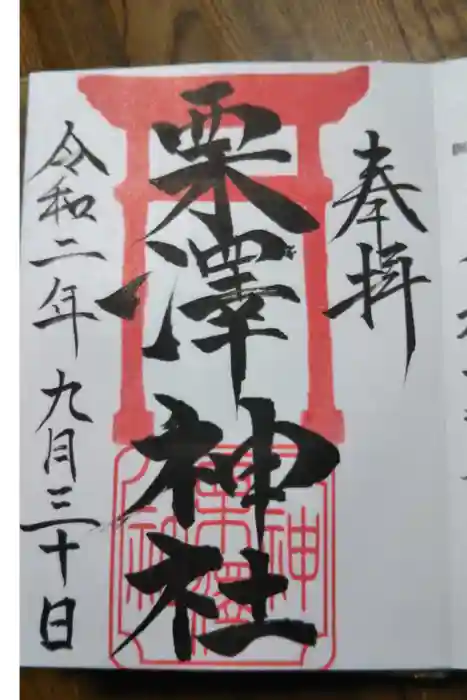 奉拝
栗澤神社
令和二年九月三十日
栗澤
神社